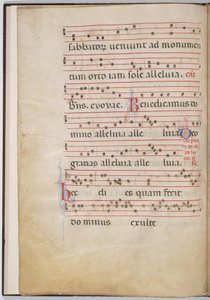 sabbatorz veniunt ad monumen
tum orto iam sole alleluia.
Pus. evovae. Benedicamus do
mino alleluia alle luia. Deo
gratias alleluia alle luia.
hec di es quam fecit
dominus exulte